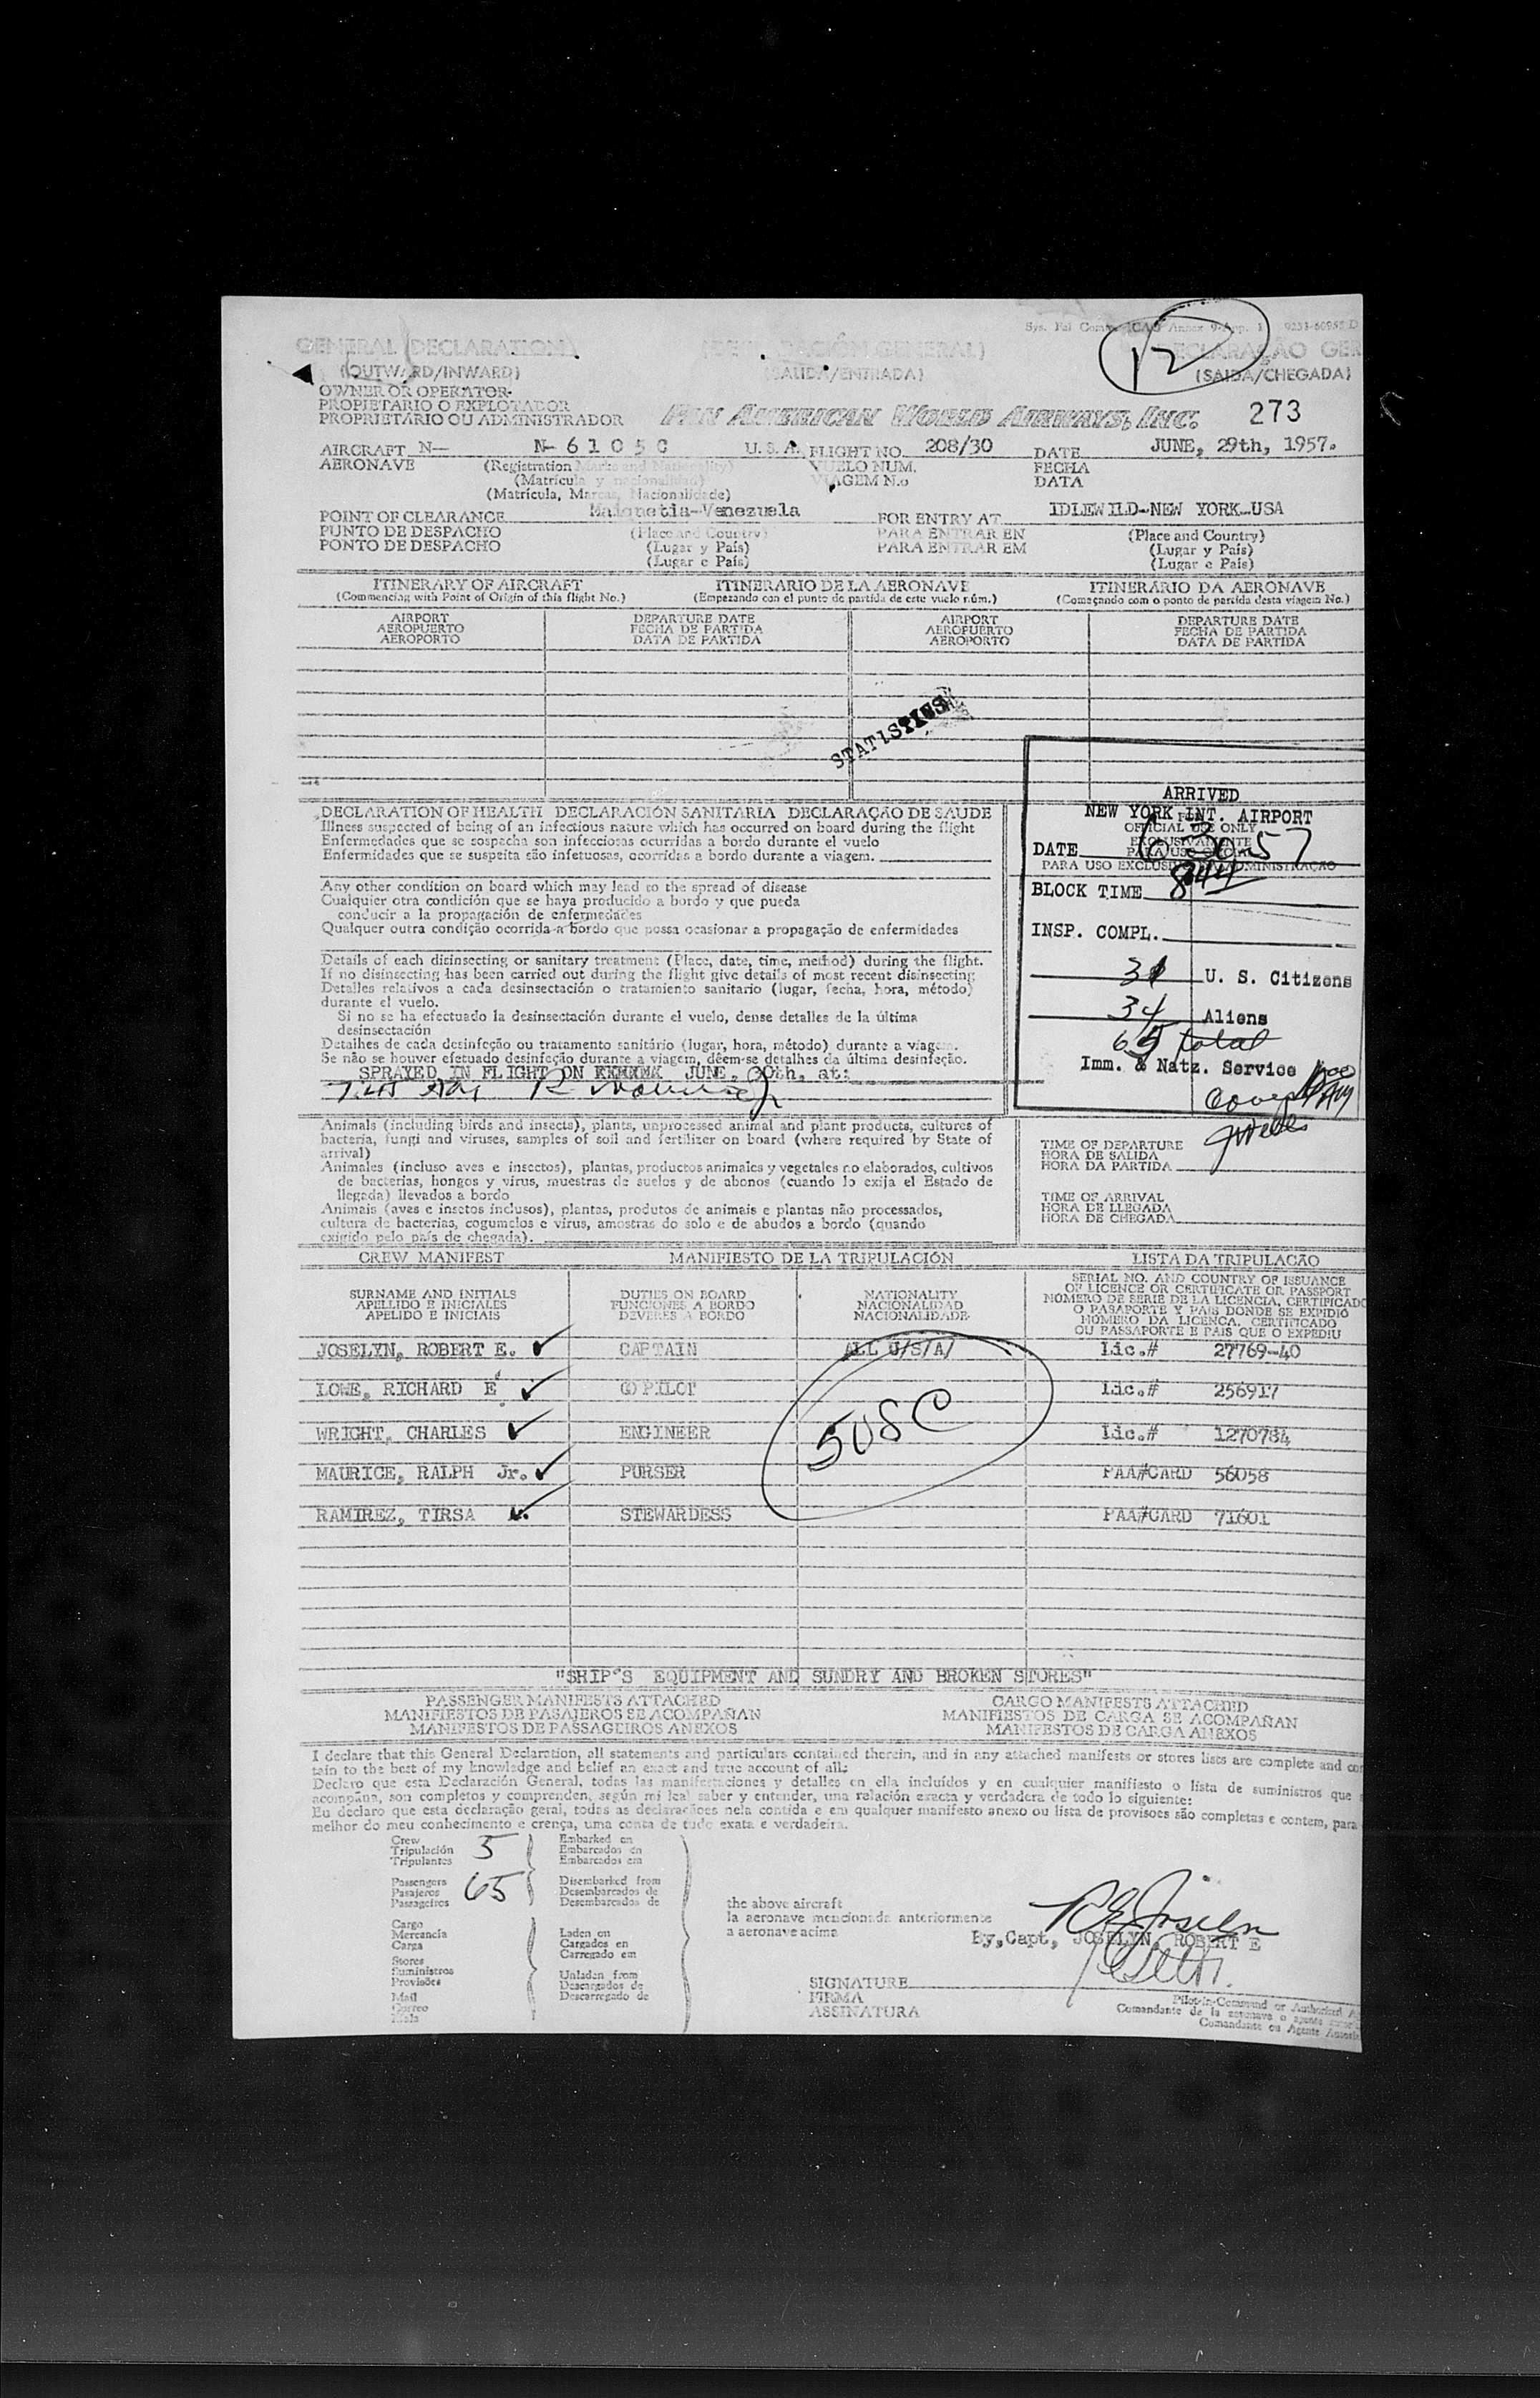 Sys. Fal Comm. ICAO Annex 9-App. 1
GENERAL DECLARATION (DECLARACIÓN GENERAL) DECLARAÇÃO GER
(OUTWARD/INWARD) (SALIDA/ENTRADA) (SAIDA/CHEGADA)
12
OWNER OR OPERATOR
PROPIETARIO O EXPLOTADOR
PROPRIETÁRIO OU ADMINISTRADOR PAN AMERICAN WORLD AIRWAYS, INC. 273
AIRCRAFT N- N-6105C U.S.A. FLIGHT NO. 208/30 DATE JUNE, 29th, 1957.
AERONAVE (Registration Marks and Nationality) VUELO NUM. FECHA
(Matrícula y nacionalidad) VIAGEM N.o DATA
(Matrícula, Marcas, Nacionalidade)
POINT OF CLEARANCE Maiquetia-Venezuela FOR ENTRY AT IDLEWILD-NEW YORK-USA
PUNTO DE DESPACHO (Place and Country) PARA ENTRAR EN (Place and Country)
PONTO DE DESPACHO (Lugar y País) PARA ENTRAR EM (Lugar y País)
(Lugar e País) (Lugar e País)
ITINERARY OF AIRCRAFT ITINERARIO DE LA AERONAVE ITINERÁRIO DA AERONAVE
(Commencing with Point of Origin of this flight No.) (Empezando con el punto de partida de este vuelo núm.) (Começando com o ponto de partida desta viagem No.)
AIRPORT DEPARTURE DATE AIRPORT DEPARTURE DATE
AEROPUERTO FECHA DE PARTIDA AEROPUERTO FECHA DE PARTIDA
AEROPORTO DATA DE PARTIDA AEROPORTO DATA DE PARTIDA
STATISTICS
DECLARATION OF HEALTH DECLARACIÓN SANITARIA DECLARAÇÃO DE SAUDE
Illness suspected of being of an infectious nature which has occurred on board during the flight
Enfermedades que se sospecha son infecciosas ocurridas a bordo durante el vuelo
Enfermidades que se suspeita são infetuosas, ocorridas a bordo durante a viagem.
Any other condition on board which may lead to the spread of disease
Cualquier otra condición que se haya producido a bordo y que pueda
conducir a la propagación de enfermedades
Qualquer outra condição ocorrida a bordo que possa ocasionar a propagação de enfermidades
Details of each disinsecting or sanitary treatment (Place, date, time, method) during the flight.
If no disinsecting has been carried out during the flight give details of most recent disinsecting
Detalles relativos a cada desinsectación o tratamiento sanitario (lugar, fecha, hora, método)
durante el vuelo.
Si no se ha efectuado la desinsectación durante el vuelo, dense detalles de la última
desinsectación
Detalhes de cada desinfeção ou tratamento sanitário (lugar, hora, método) durante a viagem.
Se não se houver efetuado desinfeção durante a viagem, dêem-se detalhes da última desinfeção.
SPRAYED IN FLIGHT ON JUNE, 30th, at:
ARRIVED
NEW YORK INT. AIRPORT
FOR
OFFICIAL USE ONLY
EXCLUSIVAMENTE
PARA USO OFICIAL
PARA USO EXCLUSIVO DA ADMINISTRAÇÃO
DATE 6-30-57
BLOCK TIME 844
INSP. COMPL.
31 U. S. Citizens
34 Aliens
65 total
Imm. & Natz. Service
Animals (including birds and insects), plants, unprocessed animal and plant products, cultures of
bacteria, fungi and viruses, samples of soil and fertilizer on board (where required by State of
arrival)
Animales (incluso aves e insectos), plantas, productos animales y vegetales no elaborados, cultivos
de bacterias, hongos y virus, muestras de suelos y de abonos (cuando lo exija el Estado de
llegada) llevados a bordo
Animais (aves e insetos inclusos), plantas, produtos de animais e plantas não processados,
cultura de bacterias, cogumelos e virus, amostras do solo e de abudos a bordo (quando
exigido pelo país de chegada).
TIME OF DEPARTURE
HORA DE SALIDA
HORA DA PARTIDA
TIME OF ARRIVAL
HORA DE LLEGADA
HORA DE CHEGADA
CREW MANIFEST MANIFIESTO DE LA TRIPULACIÓN LISTA DA TRIPULACÃO
SURNAME AND INITIALS DUTIES ON BOARD NATIONALITY
APELLIDO E INICIALES FUNCIONES A BORDO NACIONALIDAD
APELIDO E INICIAIS DEVERES A BORDO NACIONALIDADE
SERIAL NO. AND COUNTRY OF ISSUANCE
OF LICENCE OR CERTIFICATE OR PASSPORT
NÚMERO DE SERIE DE LA LICENCIA, CERTIFICADO
O PASAPORTE Y PAIS DONDE SE EXPIDIÓ
NÚMERO DA LICENCA, CERTIFICADO
OU PASSAPORTE E PAIS QUE O EXPEDIU
JOSELYN, ROBERT E. CAPTAIN ALL U/S/A/ Lic.# 27769-40
LOWE, RICHARD E COPILOT Lic.# 256917
WRIGHT, CHARLES ENGINEER Lic.# 1270784
MAURICE, RALPH Jr. PURSER PAA#CARD 56058
RAMIREZ, TIRSA STEWARDESS PAA#CARD 71601
5USC
"SHIP'S EQUIPMENT AND SUNDRY AND BROKEN STORES"
PASSENGER MANIFESTS ATTACHED CARGO MANIFESTS ATTACHED
MANIFIESTOS DE PASAJEROS SE ACOMPAÑAN MANIFIESTOS DE CARGA SE ACOMPAÑAN
MANIFESTOS DE PASSAGEIROS ANEXOS MANIFESTOS DE CARGA ANEXOS
I declare that this General Declaration, all statements and particulars contained therein, and in any attached manifests or stores lists are complete and
tain to the best of my knowledge and belief an exact and true account of all:
Declaro que esta Declaración General, todas las manifestaciones y detalles en ella incluídos y en cualquier manifiesto o lista de suministros que
acompaña, son completos y comprenden, según mi leal saber y entender, una relación exacta y verdadera de todo lo siguiente:
Eu declaro que esta declaração geral, todas as declarações nela contida e em qualquer manifesto anexo ou lista de provisoes são completas e contem, para
melhor do meu conhecimento e crença, uma conta de tudo exata e verdadeira.
Crew Embarked on
Tripulación 5 Embarcados en
Tripulantes Embarcados em
Passengers Disembarked from
Pasajeros 65 Desembarcados de
Passageiros Desembarcados de
Cargo
Mercancía Laden on
Carga Cargados en
Carregado em
Stores
Suministros Unladen from
Provisões Descargados de
Descarregado de
Mail
Correo
Mala
the above aircraft
la aeronave mencionada anteriormente
a aeronave acima
By, Capt, JOSELYN, ROBERT E
SIGNATURE
FIRMA
ASSINATURA
Pilot-in-Command or Authorized
Comandante de la aeronave o agente
Comandante ou Agente